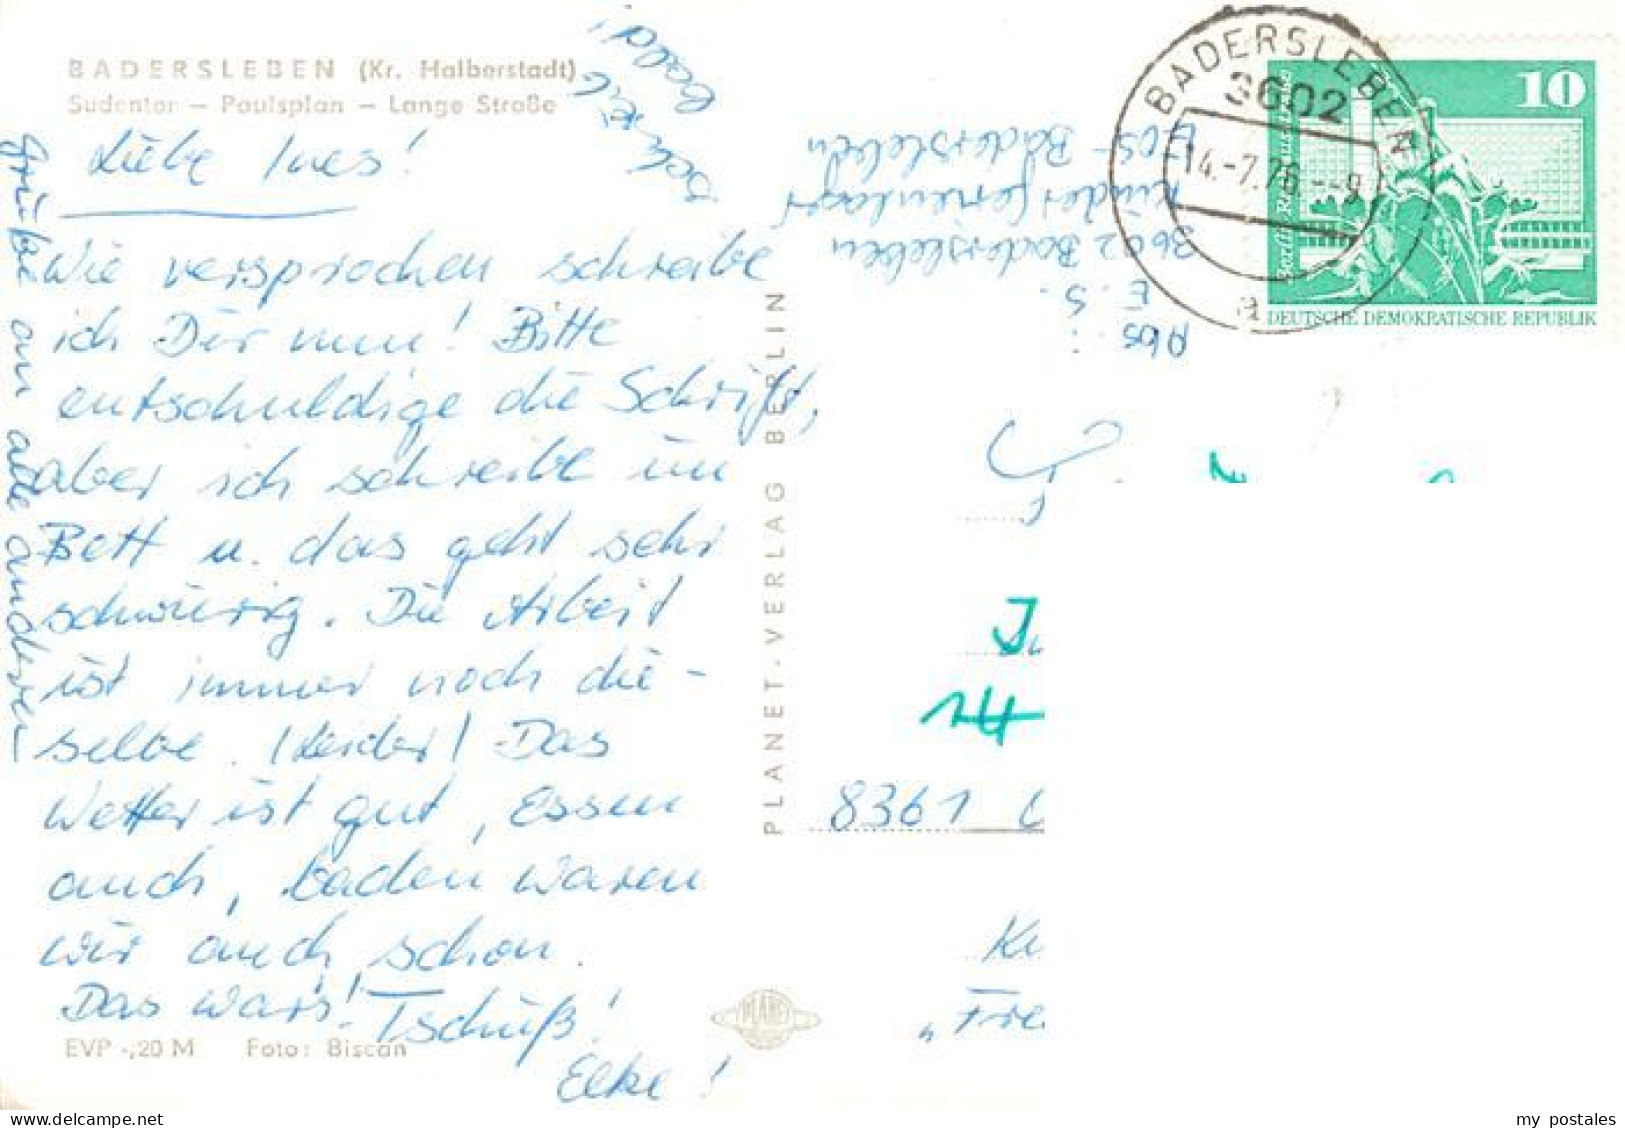 BADERSLEBEN (Kr. Halberstadt)
Sudentor – Paulsplan – Lange Straße
Liebe Ines!
Wie versprochen schreibe
ich Dir nun! Bitte
entschuldige die Schrift,
aber ich schreibe im
Bett u. das geht sehr
schwierig. Die Arbeit
ist immer noch die-
selbe. (Leider) Das
Wetter ist gut, Essen
auch, baden waren
wir auch schon.
Das war's! Tschüß!
Elke!
EVP -,20 M Foto: Biscan
Grüße an alle anderen
Schreib
bald!
PLANET-VERLAG BERLIN
PLANET
Abs.:
E. S.
3602 Badersleben
Kinderferienlager
EOS-Badersleben
BADERSLEBEN
3602
14.-7.76.--9
a
10
Berlin
DEUTSCHE DEMOKRATISCHE REPUBLIK
8361
„Fre
my postales